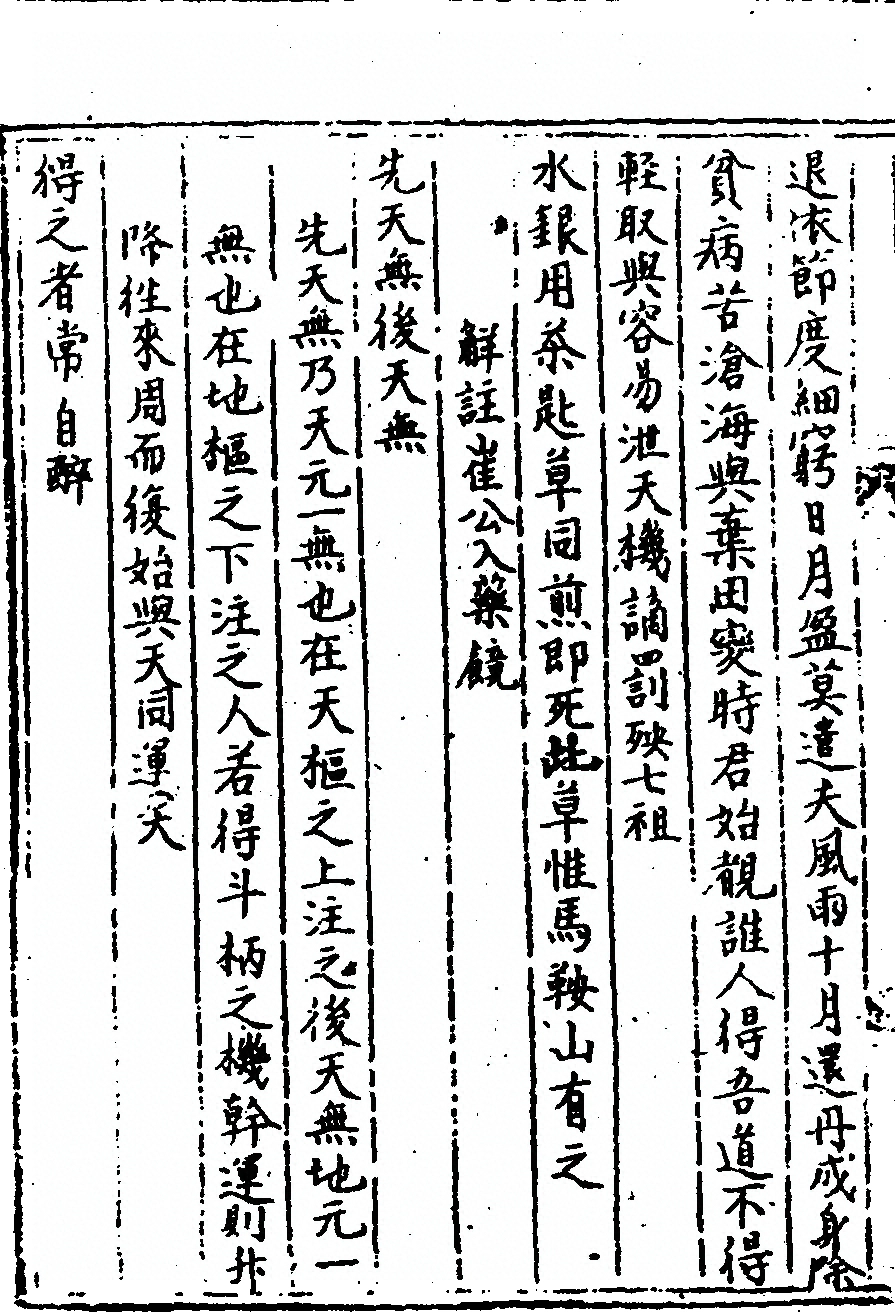 退依節度細窮日月盈莫遣夫風雨十月還丹成身除
貧病苦滄海與棄田變時君始覩誰人得吾道不得
輕取與容易泄天機謫罰殃七祖
水銀用茶匙草同煎即死此草惟馬鞍山有之
解註崔公入藥鏡
先天無後天無
先天無乃天元一無也在天樞之上注之後天無地元一
無也在地樞之下注之人若得斗柄之機幹運則升
降徃來周而復始與天同運矣
得之者常自醉